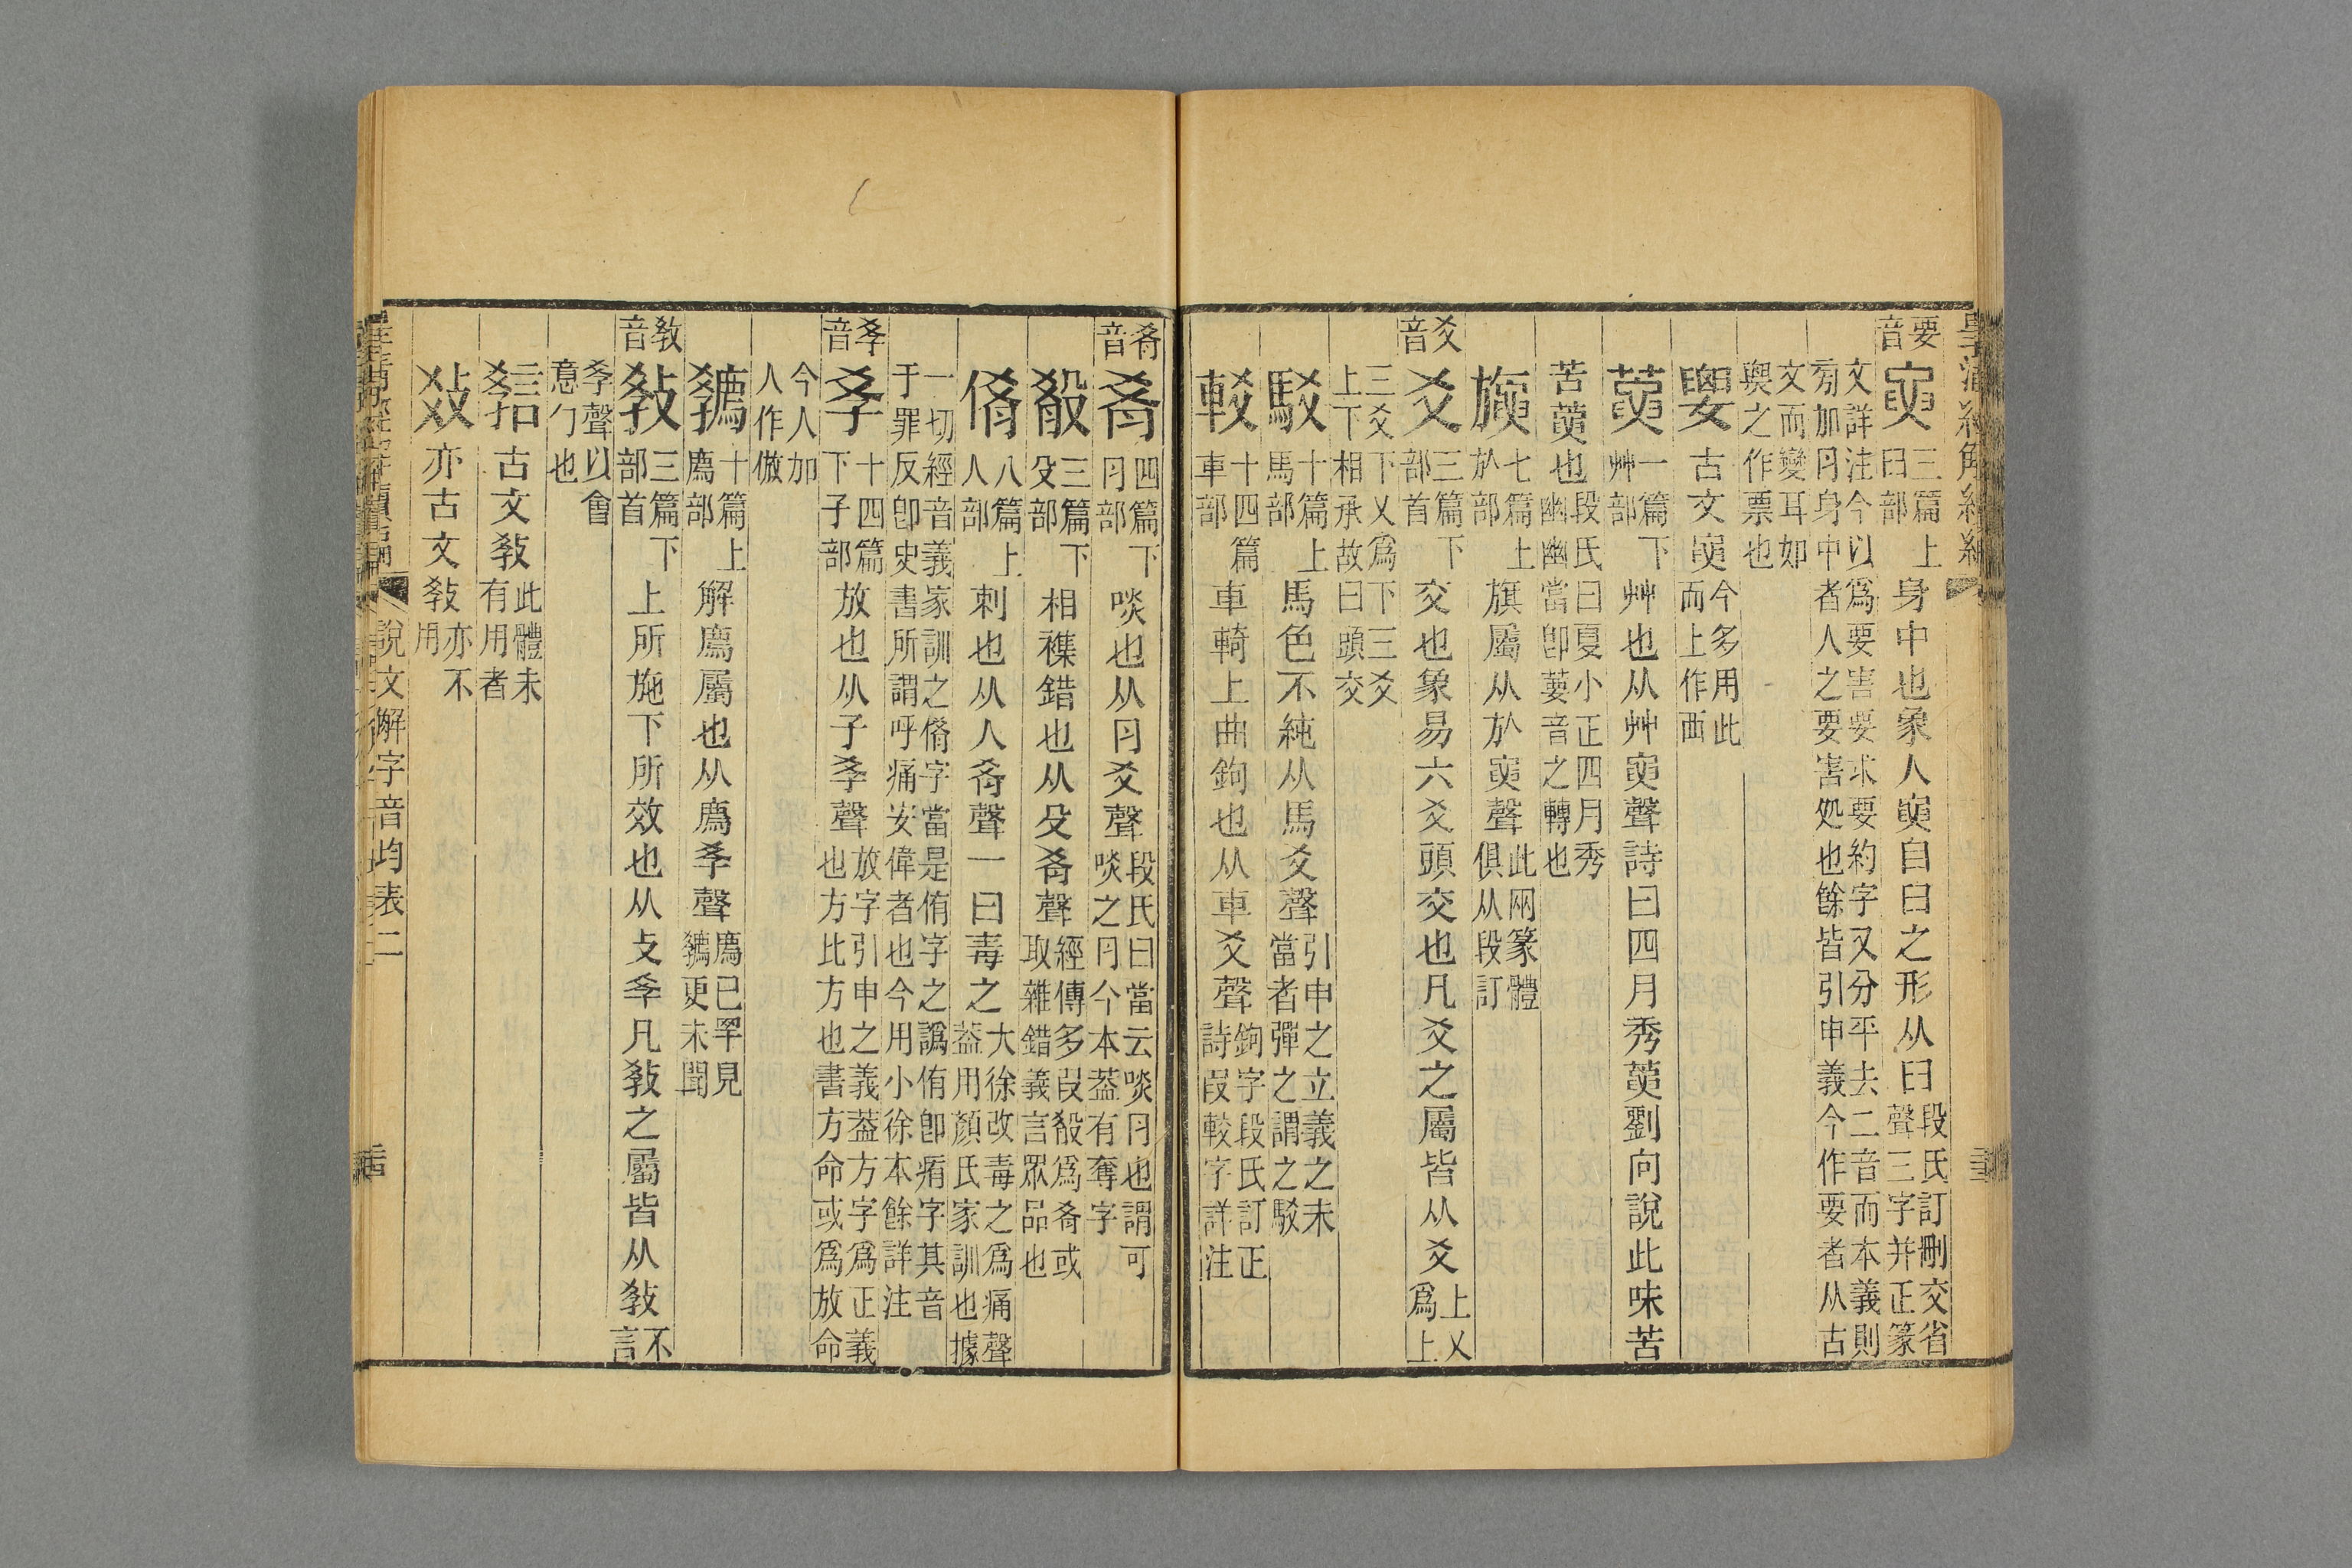 皇清經解續編
要音
𡢗三篇上臼部身中也象人𡢗自臼之形从臼段氏訂刪交省聲三字并正篆
文詳注今以爲要害要求要約字又分平去二音而本義則㫄加⺼身中者人之要害処也餘皆引申義今作要者从古
文而變耳如與之作票也
古文今多用此而上作西
一篇下艸部艸也从艸聲詩曰四月秀劉向說此味苦
苦也段氏曰夏小正四月秀幽幽當卽葽音之轉也
七篇上㫃部旗屬从㫃聲此兩篆體俱从段訂
爻音
爻三篇下部首交也象易六爻頭交也凡爻之屬皆从爻上乂爲上
三爻下乂爲下三爻上下相承故曰頭交
駁十篇上馬部馬色不純从馬爻聲引申之立義之未當者彈之謂之駁
較十四篇車部車輢上曲鉤也从車爻聲鉤字段氏訂正詩叚較字詳注
肴音
肴四篇下⺼部啖也从⺼爻聲段氏曰當云啖⺼也謂可啖之⺼今本葢有奪字
殽三篇下殳部相襍錯也从殳肴聲經傳多叚殽爲肴或取雜錯義言眾品也
倄八篇上人部刺也从人肴聲一曰毒之大徐改毒之爲痛聲葢用顏氏家訓也據
一切經音義家訓之倄字當是侑字之譌侑卽痏字其音于罪反卽史書所謂呼痛安偉者也今用小徐本餘詳注
孝音
孝十四篇下子部放也从子孝聲放字引申之義葢方字爲正義也方比方也書方命或爲放命
今人加人作倣
十篇上廌部解廌屬也从廌孝聲廌已罕見更未聞
教音
教三篇下部首上所施下所效也从攴孝凡教之屬皆从教不言
孝聲以會意勹也
古文教此體未有用者
亦古文教亦不用
說文解字音均表二